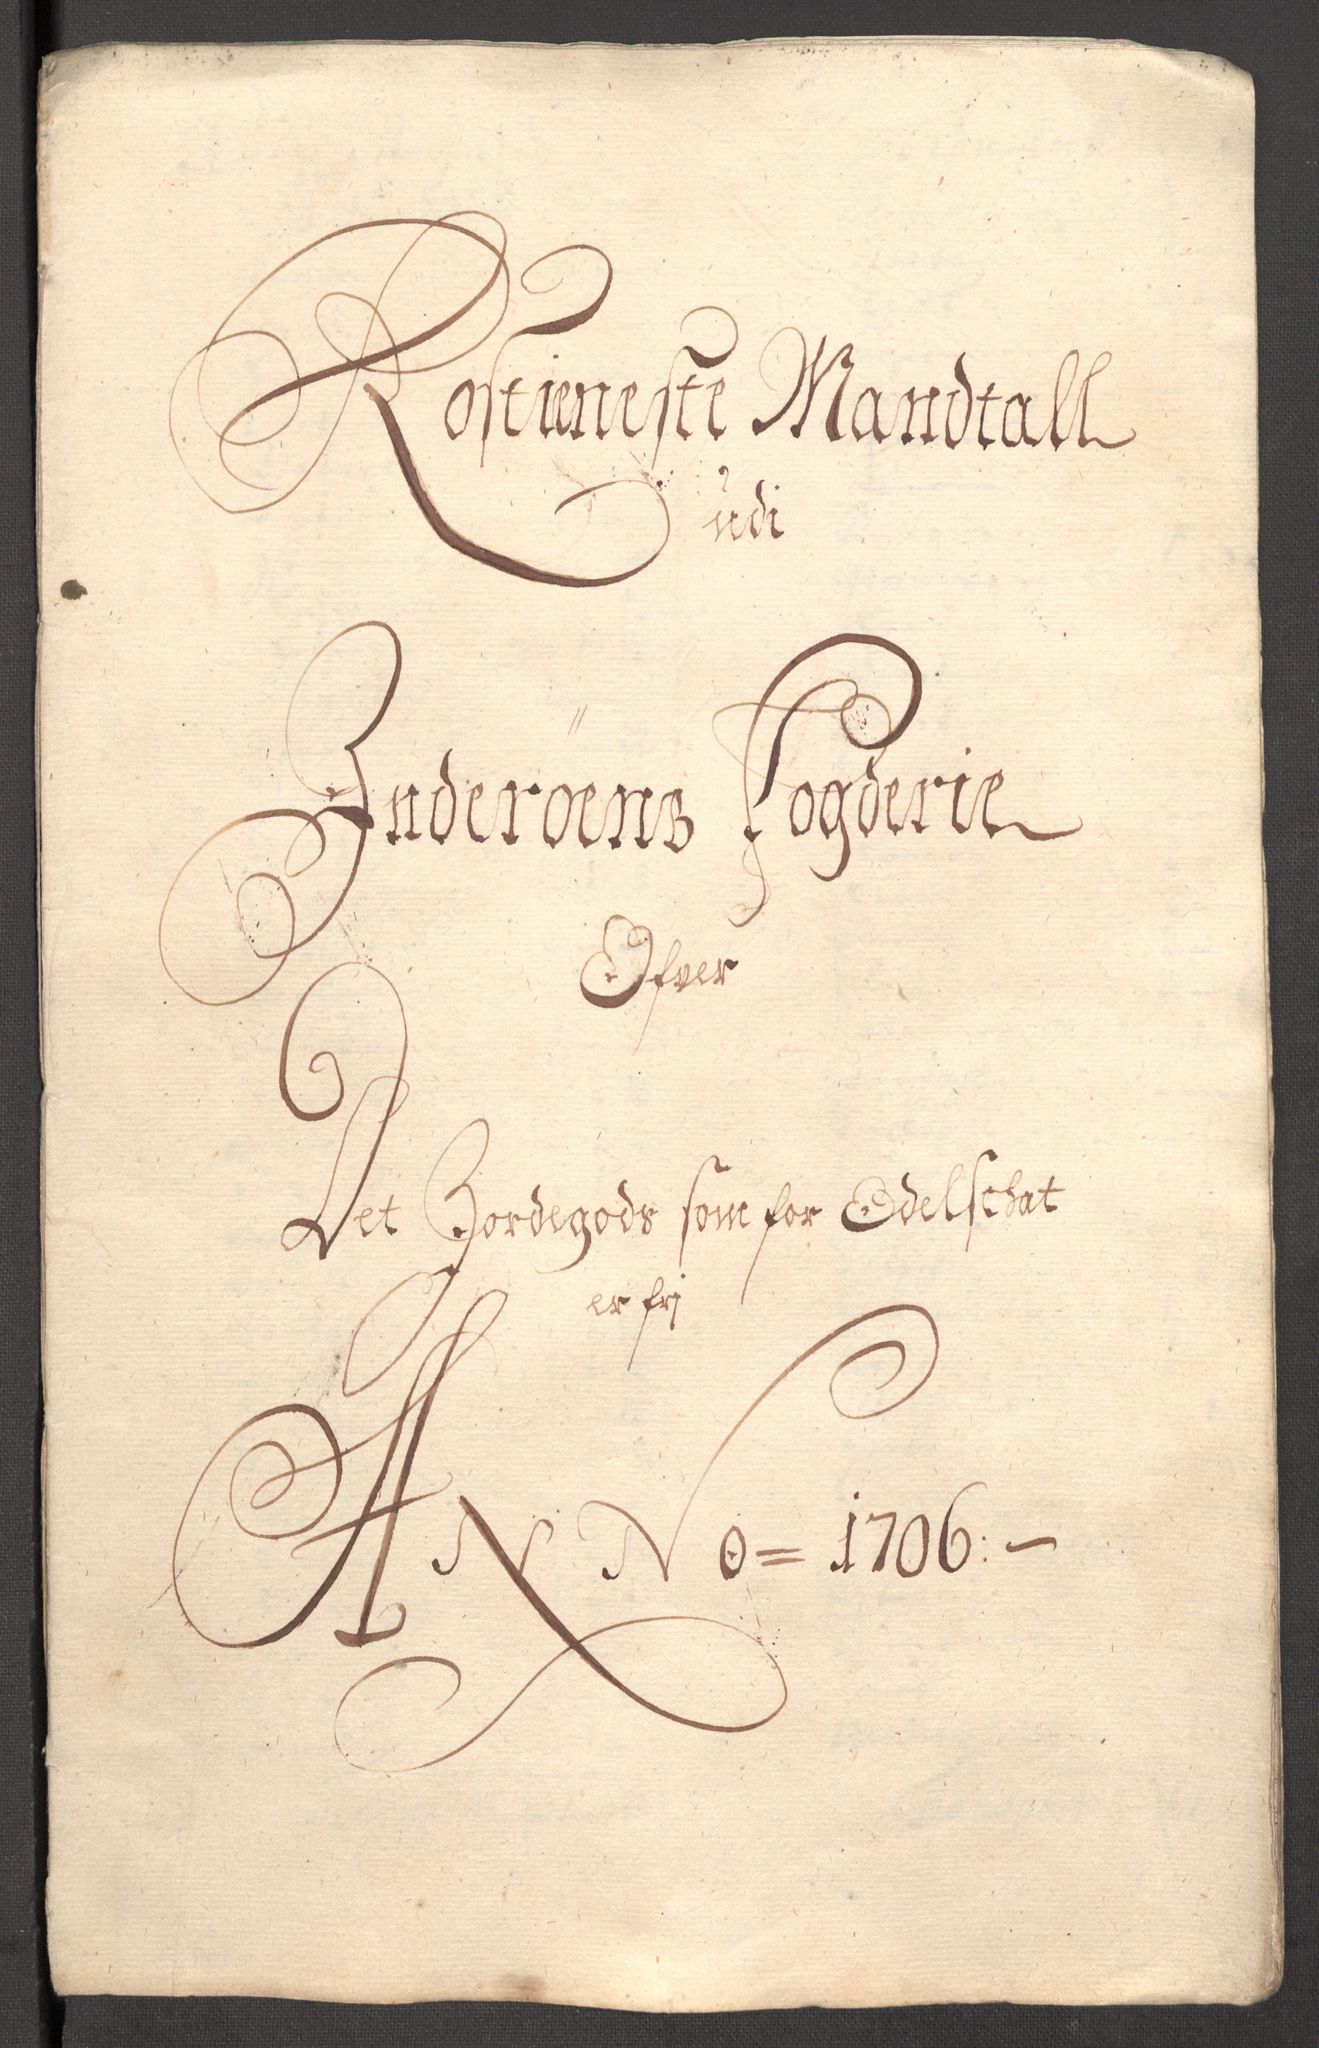 Rostieneste Mandtall
udi
Inderöens Fogderie
Ofver
Det Jordegods som for Odelschat
er frj
ANNo = 1706:-